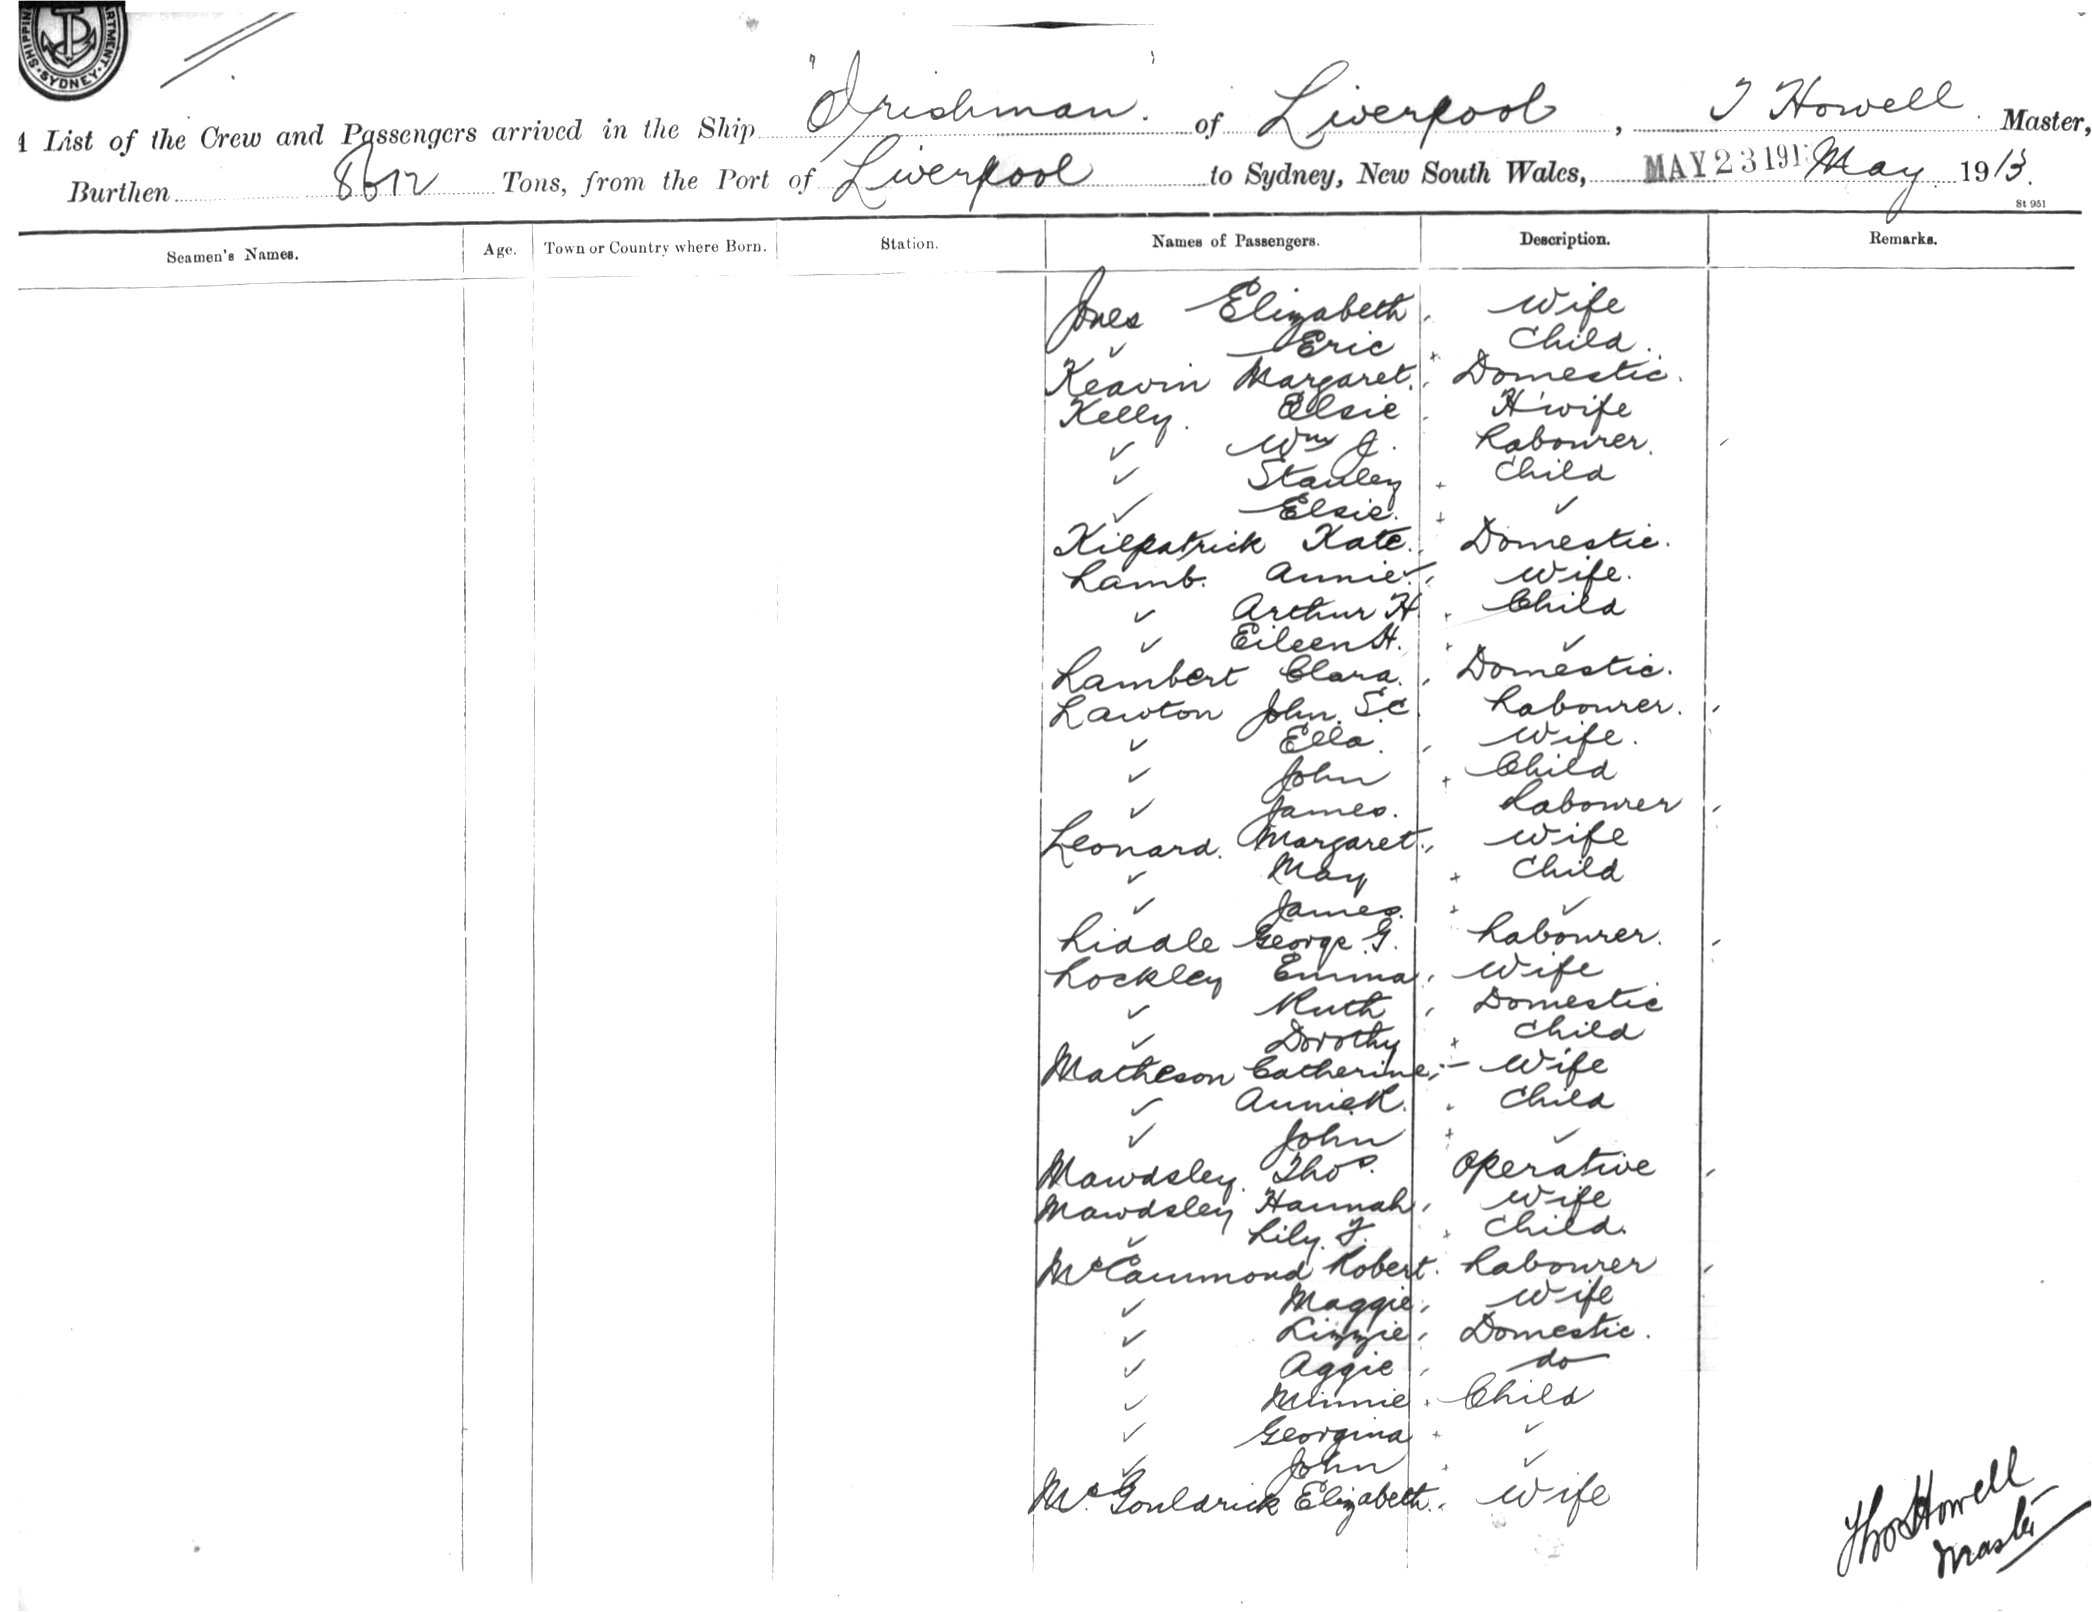 SHIPPIN
ARTMENT
SYDNEY
A List of the Crew and Passengers arrived in the Ship "Irishman" of Liverpool, T Howell Master,
Burthen 8612 Tons, from the Port of Liverpool to Sydney, New South Wales, MAY 23 191 May 1913.
St 951
Seamen's Names. Age. Town or Country where Born. Station. Names of Passengers. Description. Remarks.
Jones Elizabeth Wife
✓ Eric Child
Keavin Margaret. Domestic.
Kelly. Elsie H'wife
✓ Wm J. Labourer.
✓ Stanley Child
✓ Elsie. ✓
Kilpatrick Kate. Domestic.
Lamb. Annie. Wife.
✓ Arthur H Child
✓ Eileen H. ✓
Lambert Clara. Domestic.
Lawton John. S.C. Labourer.
✓ Ella. Wife.
✓ John Child
✓ James. Labourer
Leonard. Margaret. Wife
✓ May Child
✓ James. ✓
Liddle George G. Labourer.
Lockley Emma Wife
✓ Ruth Domestic
✓ Dorothy Child
Matheson Catherine Wife
✓ Annie R. Child
✓ John ✓
Mawdsley. Thos. Operative
Mawdsley Hannah Wife
✓ Lily. F. Child.
McCammond Robert. Labourer
✓ Maggie Wife
✓ Lizzie Domestic.
✓ Aggie do
✓ Minnie Child
✓ Georgina ✓
✓ John ✓
McGouldrick Elizabeth. Wife
Thos Howell
Master